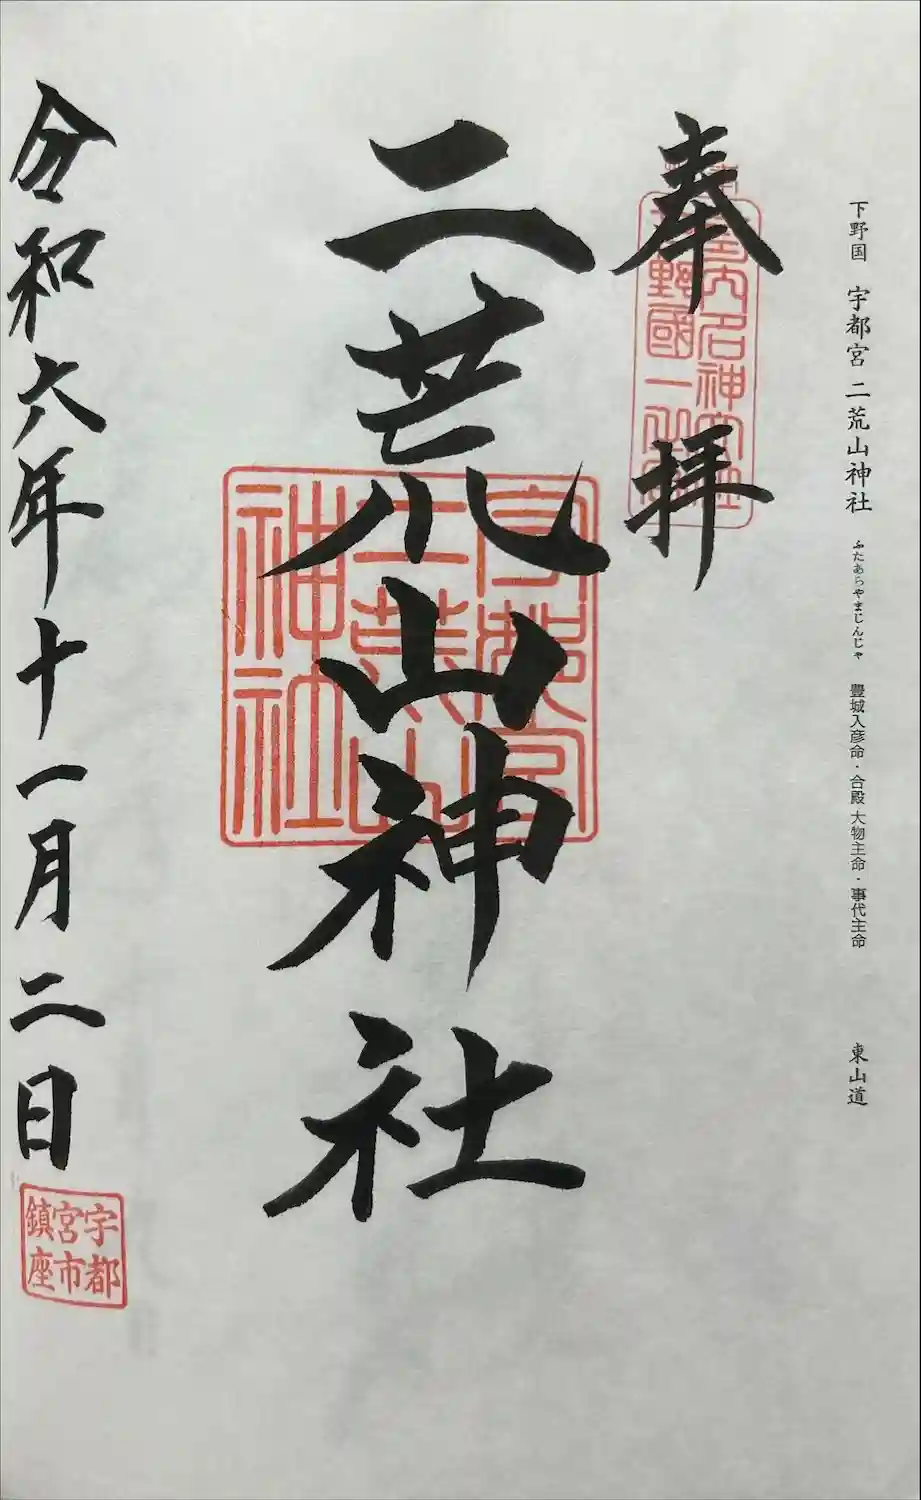 下野国 宇都宮 二荒山神社 ふたあらやまじんじゃ 豐城入彦命・合殿 大物主命・事代主命 東山道
奉拝
二荒山神社
宇都宮
二荒山
神社
令和六年十一月二日
宇都
宮市
鎮座